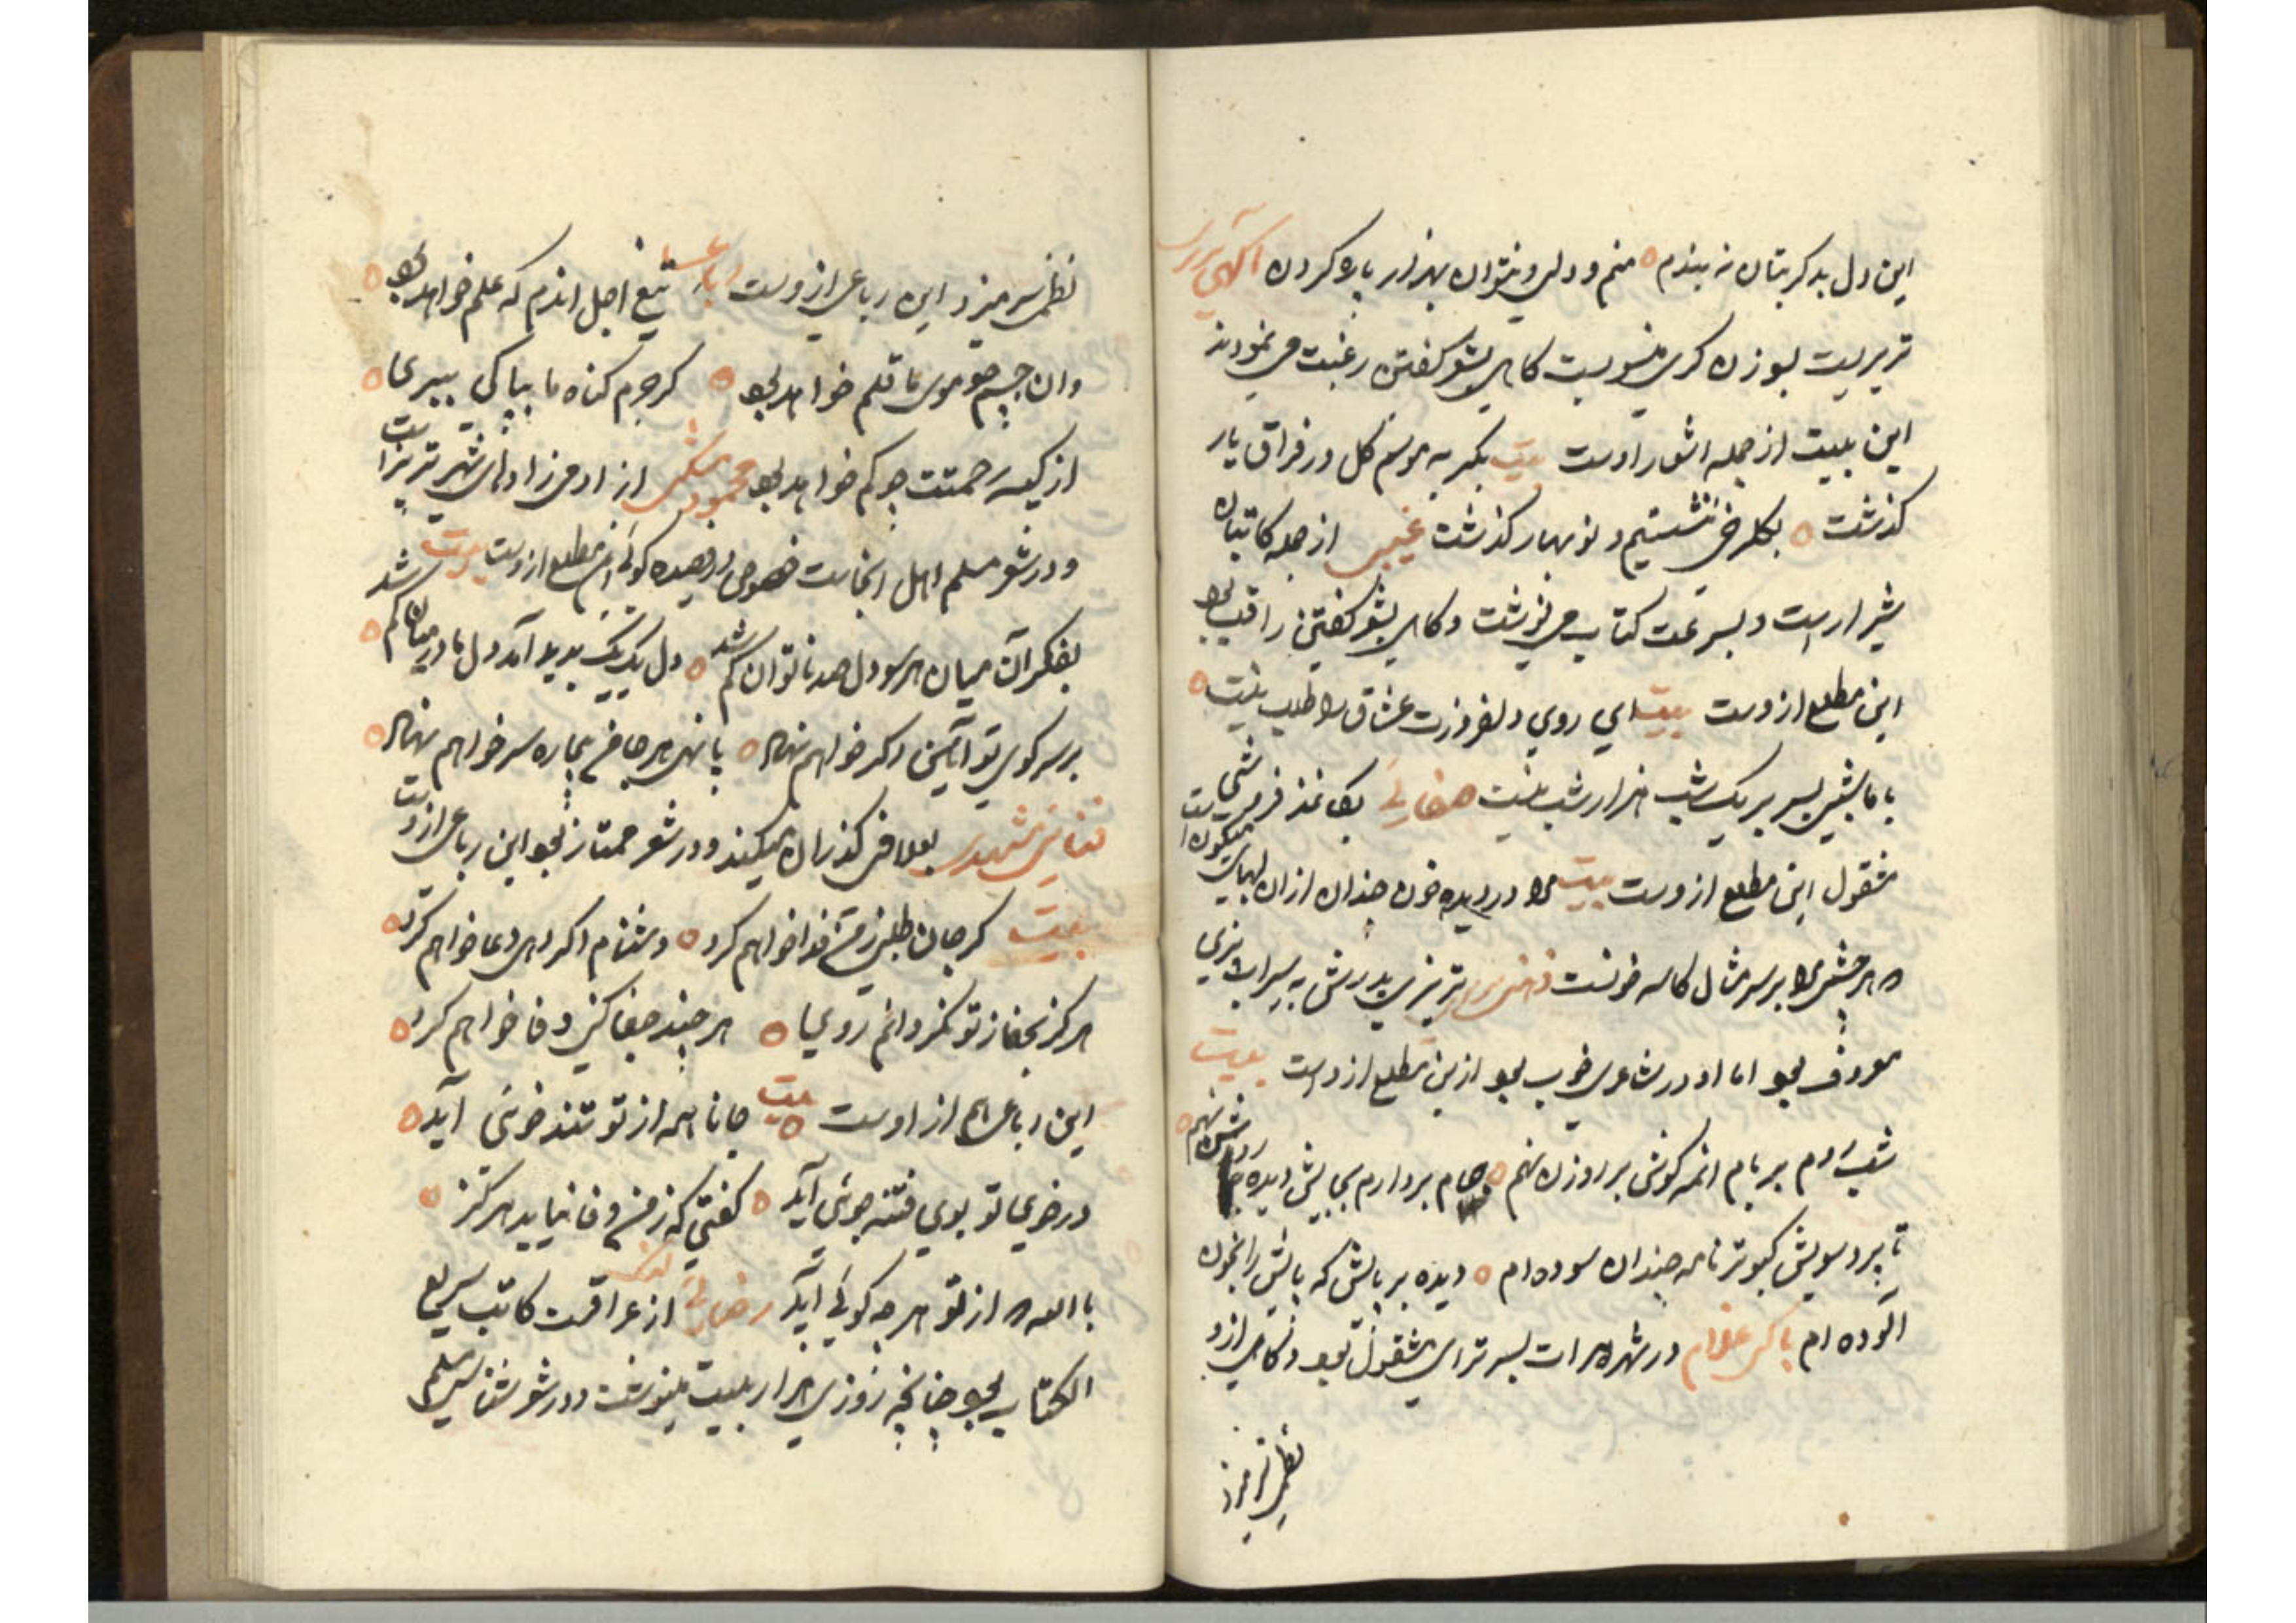 این دل بدکر بتان نه بندم منم و دلی و نتوان بهزار پاره کردن آکهی تبریزی
تبریزیست بوزن کری منسوبست کاهی بشعر کفتن رغبت می نمودند
این بیت از جمله اشعار اوست بیت بکریه موسم کل در فراق یار
کذشت بکلرخی ننشستیم و نوبهار کذشت غیبی از جمله کاتبان
شیراز است و بسرعت کتابت می نوشت و کاهی بشعر کفتن راغب بود
این مطلع ازوست بیت ای روی دلفروزت عشاق را طلب نیست
با ما شبی بسر بر یک شب هزار شب نیست صفائی بکاغذ فروشی
مشغول این مطلع ازوست بیت مرا در دیده خون چندان ازان لبهای میکون است
که هر چشمی مرا بر سر مثال کاسه خونست ذهنی تبریزی پدرش به سیراب پزی
معروف بود اما او در شاعری خوب بود ازین مطلع ازوست بیت
شب روم بر بام انمه کوش بر روزن نهم جام بردارم بجایش دیده روشن نهم
تا برد سویش کبوتر نامه چندان سوده ام دیده بر بالش که بالش را بخون
آلوده ام در شهر هرات بسر تراشی مشغول بود و کاهی ازو
نظمی سر میزد
نظمی سر میزد این رباعی ازوست رباعی تیغ اجل اندم که علم خواهد بود
وان جسم چو موی ما قلم خواهد بود کر جرم کناه ما بپاکی ببری
از کیسه رحمتت چه کم خواهد بود محمود مشکی از ادمی زادهای شهر تبریز است
و در شعر مسلم اهل انجاست خصوصا در قصیده کوئی این مطلع ازوست بیت
بفکر آن میان هر سو دل صد ناتوان کم شد دل یک یک پدید آمد دل ما در میان کم شد
بر سر کوی تو آئین دکر خواهم نهاد پا نهی هر جا من بیچاره سر خواهم نهاد
فنائی مشهدی بعلافی کذران میکند و در شعر ممتاز بود این رباعی ازوست
بیت کر جان طلبی ز من فدا خواهم کرد دشنام اکر دهی دعا خواهم کرد
هرکز بجفا ز تو نکردانم روی هر چند جفا کنی وفا خواهم کرد
این رباعی هم از اوست بیت جانا همه از تو تند خوئی آید
در خوی تو بوی فتنه جوئی آید کفتی که ز من وفا نیاید هرکز
بالله که از تو هر چه کوئی آید رضائی از عراقست کاتب سریع
الکتابت بود چنانچه روزی هزار بیت مینوشت و در شعر شناسی مسلم